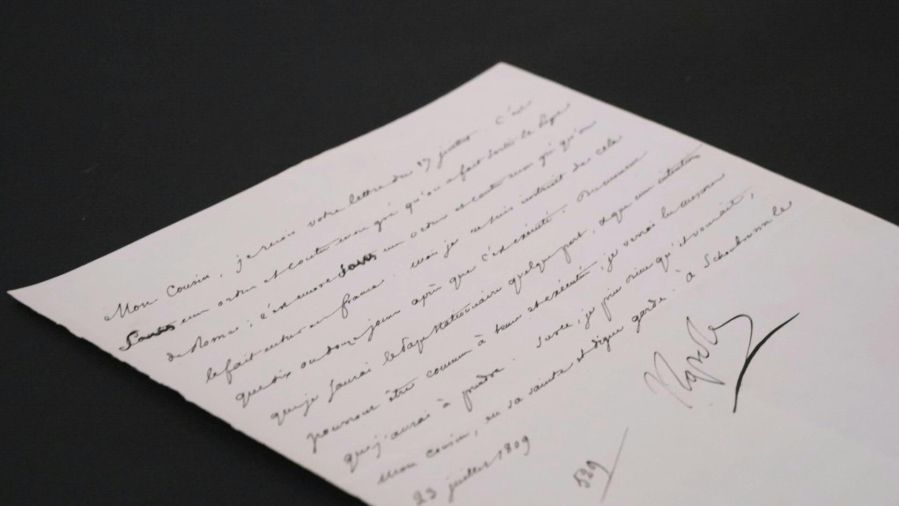 Mon Cousin, je reçois votre lettre du 17 juillet. C'est
sans mon ordre et contre mon gré qu'on a fait sortir le Pape
de Rome ; c'est encore sans mon ordre et contre mon gré qu'on
le fait entrer en france. mais je ne suis instruit de cela
que dix ou douze jours après que c'est exécuté. Du moment
que je saurai le Pape stationnaire quelque part, et que mon intention
pourrait être connue à tems et exécutée, je verrai les mesures
que j'aurai à prendre. Sur ce, je prie dieu qu'il vous ait,
mon cousin, en sa sainte et digne garde. à Schonbrunn le
23 juillet 1809
Napole
529